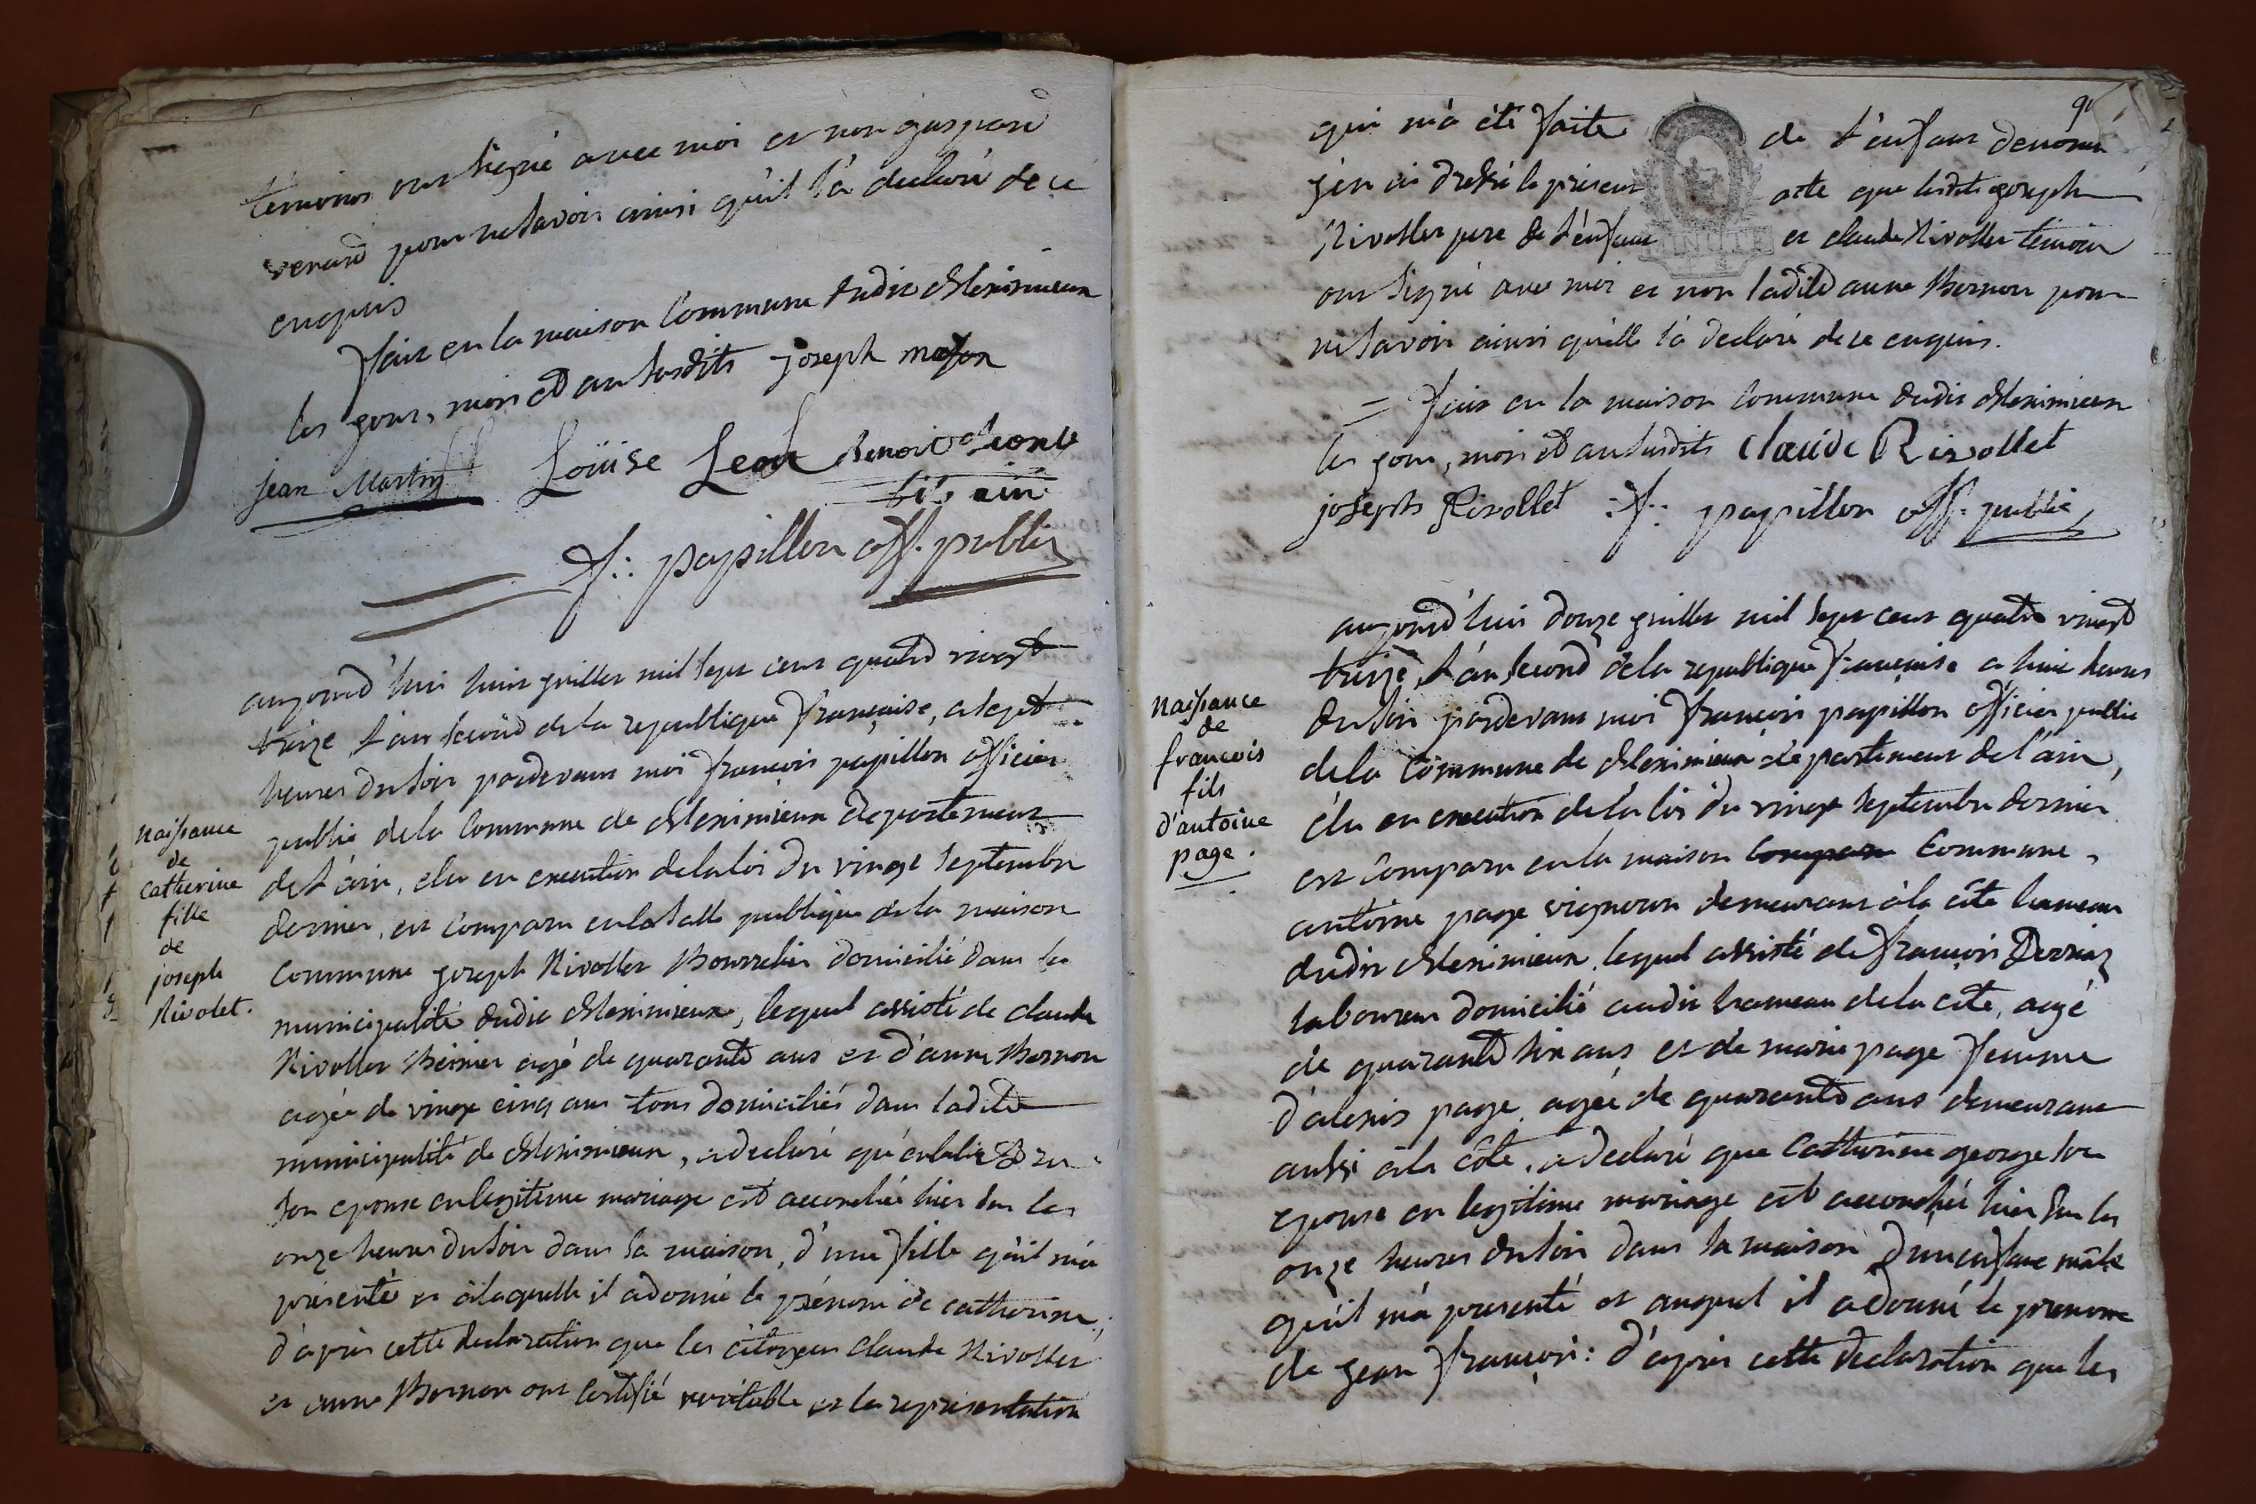 temoins ont signé avec moi et non gaspard
renard pour ne savoir ainsi qu'il l'a declaré de ce
enquis
fait en la maison commune dudit Meximieux
les jour, mois et an susdits joseph
jean Martin Loüise Leon Benoit
fils ainé
f: papillon off. public
aujourd'hui huit juillet mil sept cent quatre vingt
treize l'an second de la republique française, a sept
heures du soir pardevant moi françois papillon officier
public de la commune de Meximieux departement
de l'ain, elu en execution de la loi du vingt septembre
dernier, est comparu en la salle publique de la maison
naissance
de
catherine
fille
de
joseph
Rivolet.
commune joseph Rivollet Bourrelier domicilié dans la
municipalité dudit Meximieux, lequel assisté de claude
Rivollet agé de quarante ans et d'anne Bernon
agée de vingt cinq ans tous domiciliés dans ladite
municipalité de Meximieux, a declaré qu'
son epouse en legitime mariage est accouchée hier sur les
onze heures du soir dans sa maison, d'une fille qu'il m'a
presenté et à laquelle il a donné le prénom de catherine;
d'après cette declaration que les citoyens claude Rivollet
et anne Bernon ont certifié veritable et la representation
qui m'a été faite de l'enfant denommé
j'en ai dressé le present acte que lesdits joseph
Rivollet pere de l'enfant et claude Rivollet temoin
ont signé avec moi et non ladite anne Bernon pour
ne savoir ainsi qu'elle l'a declaré de ce enquis.
= fait en la maison commune dudit Meximieux
les jour, mois et an susdits claude Rivollet
joseph Rivollet f: papillon off. public
aujourd'hui douze juillet mil sept cent quatre vingt
treize, l'an second de la republique française a huit heures
du soir pardevant moi françois papillon officier public
de la commune de Meximieux departement de l'ain,
élu en execution de la loi du vingt septembre dernier
naissance
de
francois
fils
d'antoine
page.
est comparu en la maison comparu commune,
antoine page vigneron demeurant à la côte hameau
dudit Meximieux, lequel assisté de françois
laboureur domicilié audit hameau de la côte, agé
de quarante six ans et de marie page femme
d'alexis page, agée de quarante ans demeurant
aussi à la côte, a declaré que Catherine george son
epouse en legitime mariage est accouchée hier sur les
onze heures du soir dans sa maison d'un enfant mâle
qu'il m'a presenté et auquel il a donné le prenom
de jean françois: d'après cette declaration que les